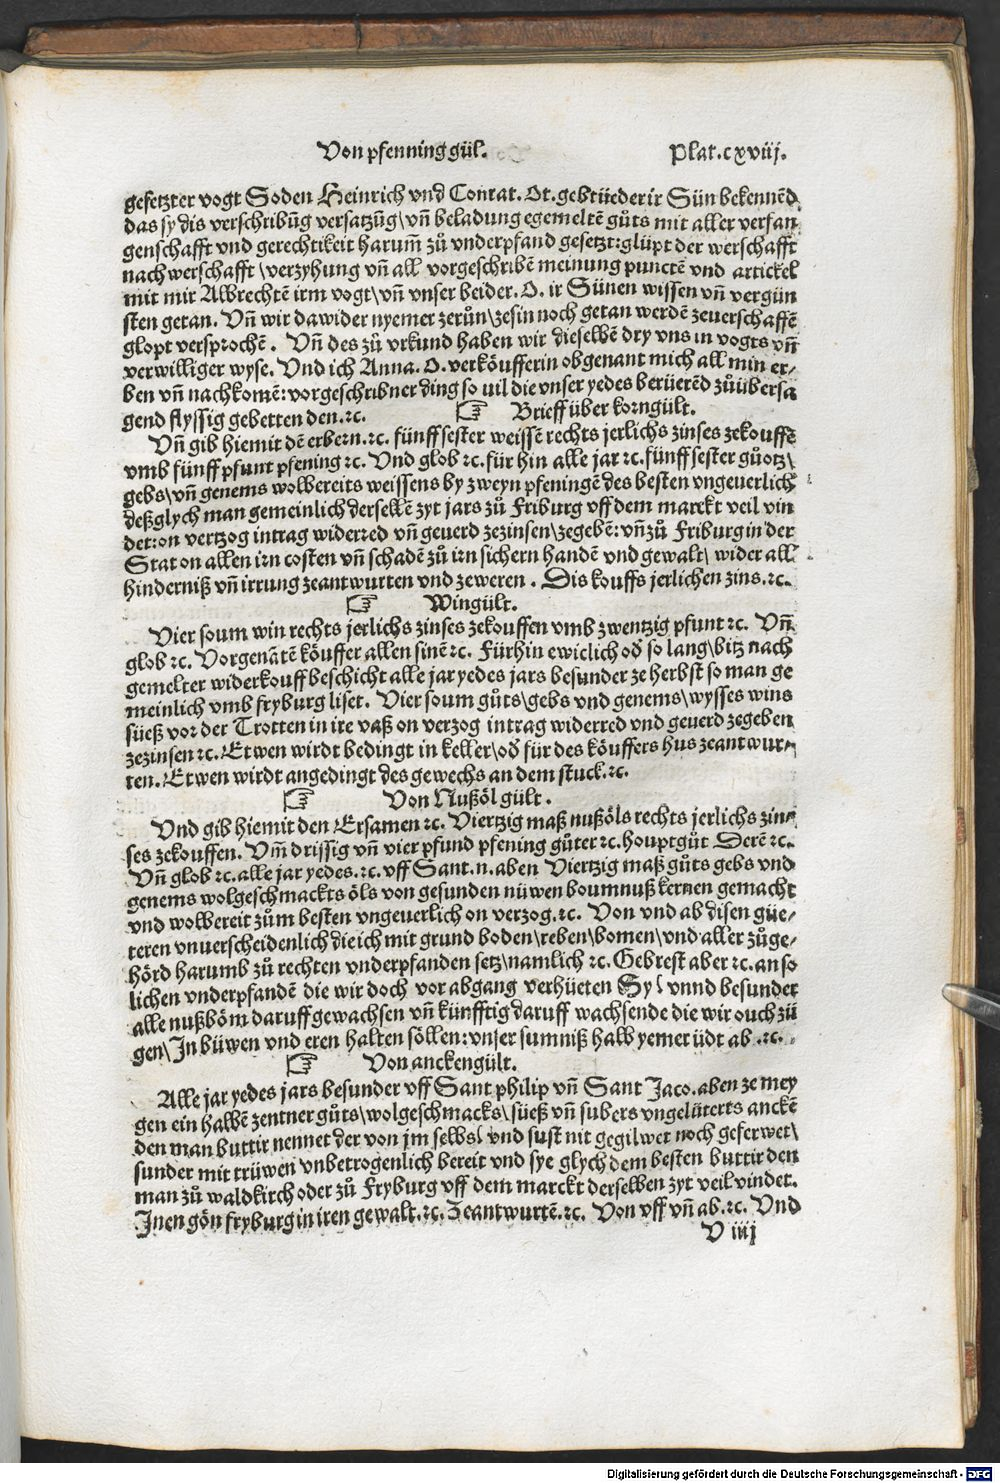 Von pfenning gül. Plat. cxviij.
gesetzter vogt Soden Heinrich vnd Conrat. Ot. gebrüeder ir Sün bekennēd
das sy dis verschribūg versatzūg\ vn̄ beladung egemeltē gůts mit aller verfan
genschafft vnd gerechtikeit harum̄ zů vnderpfand gesetzt: glüpt der werschafft
nachwerschafft \ verzyhung vn̄ all vorgeschribē meinung punctē vnd artickel
mit mir Albrechtē irm vogt\ vn̄ vnser beider. O. ir Sünen wissen vn̄ vergün
sten getan. Vn̄ wir dawider nyemer zerůn\ zesin noch getan werdē zeuerschaffē
glopt versprochē. Vn̄ des zů vrkund haben wir dieselbē dry vns in vogts vn̄
verwilliger wyse. Vnd ich Anna. O. verköufferin obgenant mich all min er⸗
ben vn̄ nachkomē: vorgeschribner ding so uil die vnser yedes berüerēd zůübersa
gend flyssig gebetten den. ⁊c. ☞ Brieff über korngült.
Vn̄ gib hiemit dē erbern. ⁊c. fünff sester weissē rechts jerlichs zinses zekouffē
vmb fünff pfunt pfening ⁊c. Vnd glob ⁊c. für hin alle jar ⁊c. fünff sester gůotz\
gebs\ vn̄ genems wolbereits weissens by zweyn pfeningē des besten vngeuerlich
deßglych man gemeinlich derselbē zyt jars zů Friburg vff dem marckt veil vin
det: on vertzog intrag widerred vn̄ geuerd zezinsen\ zegebē: vn̄ zů Friburg in der
Stat on allen irn costen vn̄ schadē zů irn sichern handē vnd gewalt\ wider all
hinderniß vn̄ irrung zeantwurten vnd zeweren. Dis kouffs jerlichen zins. ⁊c.
☞ Wingült.
Vier soum win rechts jerlichs zinses zekouffen vmb zwentzig pfunt ⁊c. Vn̄
glob ⁊c. Vorgenātē köuffer allen sinē ⁊c. Fürhin ewiclich od̄ so lang\ bitz nach
gemelter widerkouff beschicht alle jar yedes jars besunder ze herbst so man ge
meinlich vmb fryburg liset. Vier soum gůts\ gebs vnd genems\ wysses wins
süeß vor der Trotten in ire vaß on verzog intrag widerred vnd geuerd zegeben
zezinsen ⁊c. Etwen wirdt bedingt in keller\ od̄ für des köuffers hus zeantwur⸗
ten. Etwen wirdt angedingt des gewechs an dem stuck. ⁊c.
☞ Von Nußöl gült.
Vnd gib hiemit den Ersamen ⁊c. Viertzig maß nußöls rechts jerlichs zin⸗
ses zekouffen. Vm̄ drissig vn̄ vier pfund pfening gůter ⁊c. houptgůt Derē ⁊c.
Vn̄ glob ⁊c. alle jar yedes. ⁊c. vff Sant. n. aben Viertzig maß gůts gebs vnd
genems wolgeschmackts öls von gesunden nüwen boumnuß kernen gemacht
vnd wolbereit zům besten vngeuerlich on verzog. ⁊c. Von vnd ab disen güe⸗
teren vnuerscheidenlich die ich mit grund boden\ reben\ bomen\ vnd aller zůge⸗
hörd harumb zů rechten vnderpfanden setz\ namlich ⁊c. Gebrest aber ⁊c. an so
lichen vnderpfandē die wir doch vor abgang verhüeten Sy\ vnnd besunder
alle nußböm daruff gewachsen vn̄ künfftig daruff wachsende die wir ouch zü
gen\ In büwen vnd eren halten söllen: vnser sumniß halb yemer üdt ab. ⁊c.
☞ Von anckengült.
Alle jar yedes jars besunder vff Sant philip vn̄ Sant Jaco. aben ze mey
gen ein halbē zentner gůts\ wolgeschmacks\ süeß vn̄ subers vngelüterts anckē
den man buttir nennet der von jm selbs\ vnd sust nit gegilwet noch geferwet\
sunder mit trüwen vnbetrogenlich bereit vnd sye glych dem besten buttir den
man zů waldkirch oder zů Fryburg vff dem marckt derselben zyt veil vindet.
Inen gön fryburg in iren gewalt. ⁊c. Zeantwurtē. ⁊c. Von vff vn̄ ab. ⁊c. Vnd
V iiij
Digitalisierung gefördert durch die Deutsche Forschungsgemeinschaft - DFG